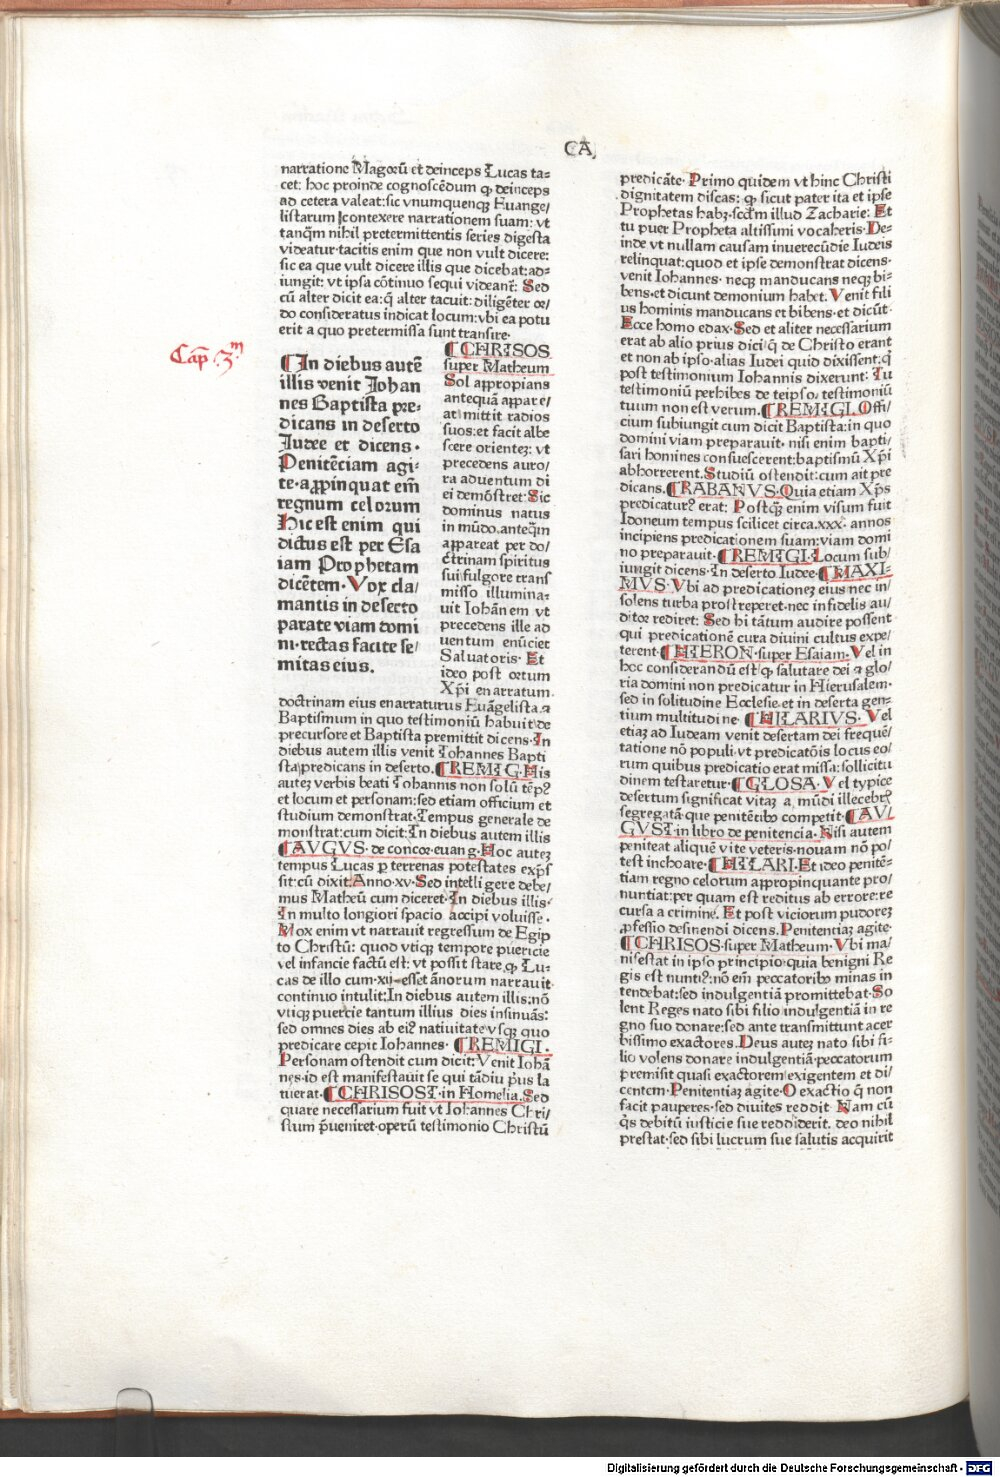 CA
narratione Magorū et deinceps Lucas ta=
cet: hoc proinde cognoscēdum ꝙ deinceps
ad cetera valeat: sic vnumquenqꝫ Euange/
listarum contexere narrationem suam: vt
tanqͣm nihil pretermittentis series digesta
videatur. tacitis enim que non vult dicere:
sic ea que vult dicere illis que dicebat: ad=
iungit: vt ipsa cōtinuo sequi videant᷑: Sed
cū alter dicit ea: q̄ alter tacuit: diligēter or/
do consideratus indicat locum: vbi ea potu
erit a quo pretermissa sunt transire.
Cap̄. 3ᵐ
¶In diebus autē
illis venit Johan
nes Baptista pre=
dicans in deserto
Judee et dicens.
Penitēciam agi=
te. appinquat em̄
regnum celorum
Hic est enim qui
dictus est per Esa
iam Prophetam
dicētem. Vox cla/
mantis in deserto
parate viam domi
ni. rectas facite se/
mitas eius.
¶CHRISOS
super Matheum
Sol appropians
antequā appare/
at mittit radios
suos: et facit albe
scere orientē: vt
precedens auro/
ra aduentum di
ei demōstret: Sic
dominus natus
in mūdo. anteqͣm
appareat per do/
ctrinam spiritus
sui fulgore trans
misso illumina=
uit Iohānem vt
precedens ille ad
uentum enūciet
Saluatoris. Et
ideo post ortum
Xp̄i enarratum.
doctrinam eius enarraturus Euāgelista. ⁊
Baptismum in quo testimoniū habuit de
precursore et Baptista premittit dicens. In
diebus autem illis venit Iohannes Bapti
sta predicans in deserto. ¶REMIG. His
autē verbis beati Iohannis non solū tēpꝰ
et locum et personam: sed etiam officium et
studium demonstrat. Tempus generale de
monstrat: cum dicit: In diebus autem illis
¶AVGVS. de concor. euang. Hoc autē
tempus Lucas ꝑ terrenas potestates exp̄s
sit: cū dixit. Anno. xv. Sed intelligere debe/
mus Matheū cum diceret. In diebus illis.
In multo longiori spacio accipi voluisse.
Mox enim vt narrauit regressum de Egip
to Christū: quod vtiqꝫ tempore puericie
vel infancie factū est: vt possit stare. ꝙ Lu=
cas de illo cum. xij. esset ānorum narrauit.
continuo intulit: In diebus autem illis: nō
vtiqꝫ puericie tantum illius dies insinuās:
sed omnes dies ab eiꝰ natiuitate vsqꝫ quo
predicare cepit Iohannes. ¶REMIGI.
Personam ostendit cum dicit: Venit Iohā
nes. id est manifestauit se qui tādiu p̄us la
tuerat. ¶CHRISOST. in Homelia. Sed
quare necessarium fuit vt Iohannes Chri/
stum p̄ueniret. operū testimonio Christū
predicāte. Primo quidem vt hinc Christi
dignitatem discas: ꝙ sicut pater ita et ipse
Prophetas habꝫ. sccd̄m illud Zacharie: Et
tu puer Propheta altissimi vocaberis. De=
inde vt nullam causam inuerecūdie Iudeis
relinquat: quod et ipse demonstrat dicens.
venit Iohannes. neqꝫ manducans neqꝫ bi=
bens. et dicunt demonium habet. Venit fili
us hominis manducans et bibens. et dicūt.
Ecce homo edax. Sed et aliter necessarium
erat ab alio prius dici q̄ de Christo erant
et non ab ipso. alias Iudei quid dixissent: q̄
post testimonium Iohannis dixerunt: Tu
testimoniū perhibes de teipso. testimoniū
tuum non est verum. ¶REMIGI. Offi/
cium subiungit cum dicit Baptista: in quo
domini viam preparauit. nisi enim bapti/
sari homines consuescerent: baptismū Xp̄i
abhorrerent. Studiū ostendit: cum ait pre
dicans. ¶RABANVS. Quia etiam Xp̄s
predicaturꝰ erat: Postqͣꝫ enim visum fuit
Idoneum tempus scilicet circa. xxx. annos
incipiens predicationem suam: viam domi
no preparauit. ¶REMIGI. Locum sub/
iungit dicens. In deserto Iudee. ¶MAXI=
MVS. Vbi ad predicationē eius nec in/
solens turba prostreperet. nec infidelis au/
ditor rediret: Sed hi tātum audire possent
qui predicationē cura diuini cultus expe/
terent. ¶HIERON. super Esaiam. Vel in
hoc considerandū est: ꝙ salutare dei ⁊ glo/
ria domini non predicatur in Hierusalem.
sed in solitudine Ecclesie. et in deserta gen=
tium multitudine. ¶HILARIVS. Vel
etiaꝫ ad Iudeam venit desertam dei frequē/
tatione nō populi. vt predicatōis locus eo/
rum quibus predicatio erat missa: sollicitu
dinem testaretur. ¶GLOSA. Vel typice
desertum significat vitaꝫ a mūdi illecebrꝭ
segregatā: que penitētibꝰ competit. ¶AV/
GVST. in libro de penitencia. Nisi autem
peniteat aliquē vite veteris. nouam nō po/
test inchoare. ¶HILARI. Et ideo penitē=
tiam regno celorum appropinquante pro/
nuntiat: per quam est reditus ab errore: re
cursa a crimine. Et post viciorum pudorē
ꝓfessio desinendi dicens. Penitentiaꝫ agite.
¶CHRISOS. super Matheum. Vbi ma/
nifestat in ipso principio. quia benigni Re
gis est nuntiꝰ: nō em̄ peccatoribꝰ minas in
tendebat: sed indulgentiā promittebat. So
lent Reges nato sibi filio indulgentiā in re
gno suo donare: sed ante transmittunt acer
bissimo exactores. Deus autē nato sibi fi=
lio volens donare indulgentiā. peccatorum
premisit quasi exactorem exigentem et di/
centem. Penitentiaꝫ agite. O exactio q̄ non
facit pauperes. sed diuites reddit. Nam cū
qͥs debitū iusticie sue reddiderit. deo nihil
prestat. sed sibi lucrum sue salutis acquirit
Digitalisierung gefördert durch die Deutsche Forschungsgemeinschaft - DFG